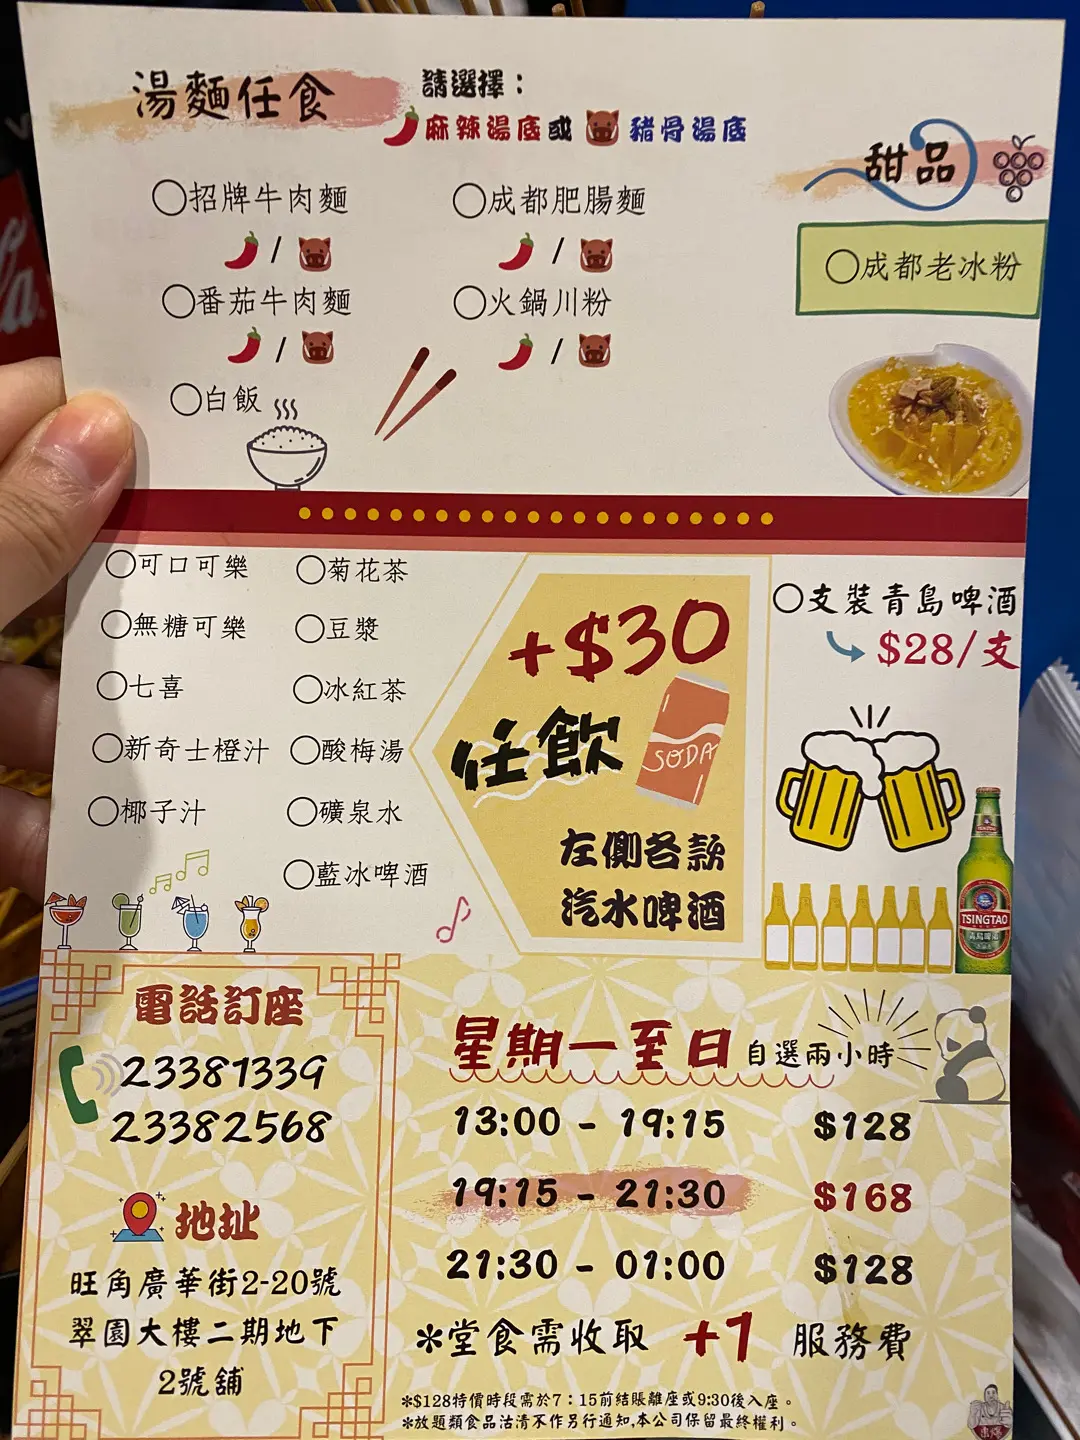 湯麵任食
請選擇：
麻辣湯底或 豬骨湯底
甜品
○招牌牛肉麵
○成都肥腸麵
/
/
○成都老冰粉
○番茄牛肉麵
○火鍋川粉
/
/
○白飯
○可口可樂
○菊花茶
○無糖可樂
○豆漿
○七喜
○冰紅茶
○新奇士橙汁
○酸梅湯
○椰子汁
○礦泉水
○藍冰啤酒
+$30
任飲
SODA
左側各款
汽水啤酒
○支裝青島啤酒
$28/支
TSINGTAO
青島啤酒
電話訂座
23381339
23382568
地址
旺角廣華街2-20號
翠園大樓二期地下
2號舖
星期一至日 自選兩小時
13:00 - 19:15 $128
19:15 - 21:30 $168
21:30 - 01:00 $128
*堂食需收取 +1 服務費
*$128特價時段需於7：15前結賬離座或9:30後入座。
*放題類食品沽清不作另行通知,本公司保留最終權利。